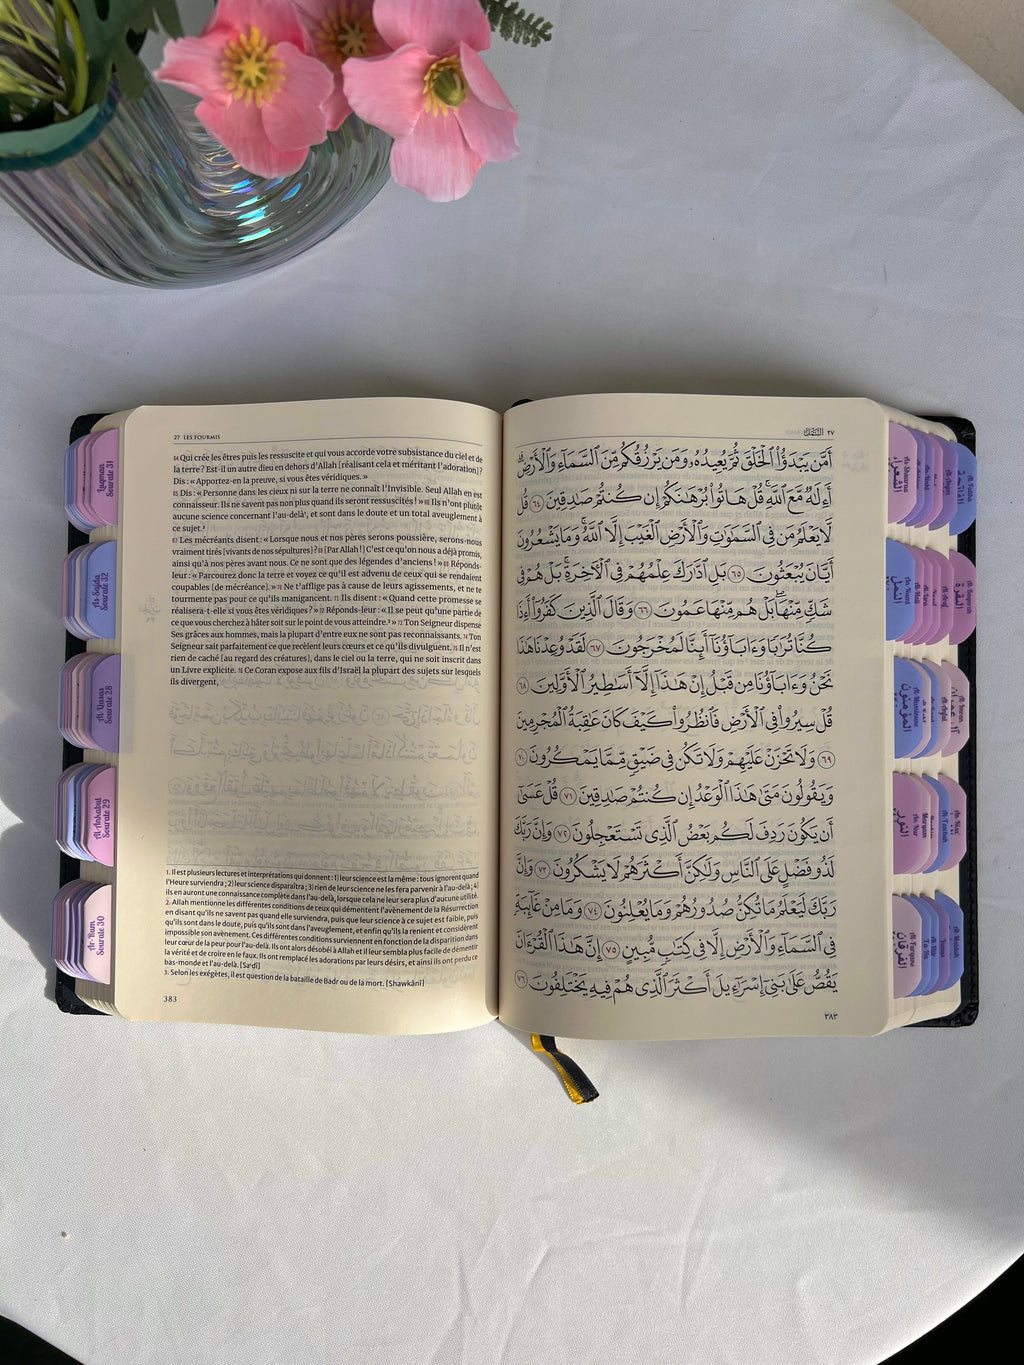 27 LES FOURMIS
64 Qui crée les êtres puis les ressuscite et qui vous accorde votre subsistance du ciel et de
la terre ? Est-il un autre dieu en dehors d'Allah [réalisant cela et méritant l'adoration] ?
Dis : « Apportez-en la preuve, si vous êtes véridiques. »
65 Dis : « Personne dans les cieux ni sur la terre ne connaît l'Invisible. Seul Allah en est
connaisseur. Ils ne savent pas non plus quand ils seront ressuscités ! » 66 Ils n'ont plutôt
aucune science concernant l'au-delà¹, et sont dans le doute et un total aveuglement à
ce sujet.²
67 Les mécréants disent : « Lorsque nous et nos pères serons poussière, serons-nous
vraiment tirés [vivants de nos sépultures] ? 68 [Par Allah !] C'est ce qu'on nous a déjà promis,
ainsi qu'à nos pères avant nous. Ce ne sont que des légendes d'anciens ! » 69 Réponds-
leur : « Parcourez donc la terre et voyez ce qu'il est advenu de ceux qui se rendaient
coupables [de mécréance]. » 70 Ne t'afflige pas à cause de leurs agissements, et ne te
tourmente pas pour ce qu'ils manigancent. 71 Ils disent : « Quand cette promesse se
réalisera-t-elle si vous êtes véridiques ? » 72 Réponds-leur : « Il se peut qu'une partie de
ce que vous cherchez à hâter soit sur le point de vous atteindre.³ » 73 Ton Seigneur dispense
Ses grâces aux hommes, mais la plupart d'entre eux ne sont pas reconnaissants. 74 Ton
Seigneur sait parfaitement ce que recèlent leurs cœurs et ce qu'ils divulguent. 75 Il n'est
rien de caché [au regard des créatures], dans le ciel ou la terre, qui ne soit inscrit dans
un Livre explicite. 76 Ce Coran expose aux fils d'Israël la plupart des sujets sur lesquels
ils divergent,
1. Il est plusieurs lectures et interprétations qui donnent : 1) leur science est la même : tous ignorent quand
l'Heure surviendra ; 2) leur science disparaîtra ; 3) rien de leur science ne les fera parvenir à l'au-delà ; 4)
ils en auront une connaissance complète dans l'au-delà, lorsque cela ne leur sera plus d'aucune utilité.
2. Allah mentionne les différentes conditions de ceux qui démentent l'avènement de la Résurrection
en disant qu'ils ne savent pas quand elle surviendra, puis que leur science à ce sujet est faible, puis
qu'ils sont dans le doute, puis qu'ils sont dans l'aveuglement, et enfin qu'ils la renient et considèrent
impossible son avènement. Ces différentes conditions surviennent en fonction de la disparition dans
leur cœur de la peur pour l'au-delà. Ils ont alors désobéi à Allah et il leur sembla plus facile de démentir
la vérité et de croire en le faux. Ils ont remplacé les adorations par leurs désirs, et ainsi ils ont perdu ce
bas-monde et l'au-delà. [Sa'dî]
3. Selon les exégètes, il est question de la bataille de Badr ou de la mort. [Shawkânî]
383
٢٧ النَّمْل
أَمَّن يَبْدَؤُاْ ٱلْخَلْقَ ثُمَّ يُعِيدُهُۥ وَمَن يَرْزُقُكُم مِّنَ ٱلسَّمَآءِ وَٱلْأَرْضِۗ
أَءِلَٰهٌ مَّعَ ٱللَّهِۚ قُلْ هَاتُواْ بُرْهَٰنَكُمْ إِن كُنتُمْ صَٰدِقِينَ ٦٤ قُل
لَّا يَعْلَمُ مَن فِي ٱلسَّمَٰوَٰتِ وَٱلْأَرْضِ ٱلْغَيْبَ إِلَّا ٱللَّهُۚ وَمَا يَشْعُرُونَ
أَيَّانَ يُبْعَثُونَ ٦٥ بَلِ ٱدَّٰرَكَ عِلْمُهُمْ فِي ٱلْأٓخِرَةِۚ بَلْ هُمْ فِي
شَكٍّ مِّنْهَاۖ بَلْ هُم مِّنْهَا عَمُونَ ٦٦ وَقَالَ ٱلَّذِينَ كَفَرُوٓاْ أَءِذَا
كُنَّا تُرَٰبًا وَءَابَآؤُنَآ أَئِنَّا لَمُخْرَجُونَ ٦٧ لَقَدْ وُعِدْنَا هَٰذَا
نَحْنُ وَءَابَآؤُنَا مِن قَبْلُ إِنْ هَٰذَآ إِلَّآ أَسَٰطِيرُ ٱلْأَوَّلِينَ ٦٨
قُلْ سِيرُواْ فِي ٱلْأَرْضِ فَٱنظُرُواْ كَيْفَ كَانَ عَٰقِبَةُ ٱلْمُجْرِمِينَ
٦٩ وَلَا تَحْزَنْ عَلَيْهِمْ وَلَا تَكُن فِي ضَيْقٍ مِّمَّا يَمْكُرُونَ ٧٠
وَيَقُولُونَ مَتَىٰ هَٰذَا ٱلْوَعْدُ إِن كُنتُمْ صَٰدِقِينَ ٧١ قُلْ عَسَىٰٓ
أَن يَكُونَ رَدِفَ لَكُم بَعْضُ ٱلَّذِي تَسْتَعْجِلُونَ ٧٢ وَإِنَّ رَبَّكَ
لَذُو فَضْلٍ عَلَى ٱلنَّاسِ وَلَٰكِنَّ أَكْثَرَهُمْ لَا يَشْكُرُونَ ٧٣ وَإِنَّ
رَبَّكَ لَيَعْلَمُ مَا تُكِنُّ صُدُورُهُمْ وَمَا يُعْلِنُونَ ٧٤ وَمَا مِنْ غَآئِبَةٍ
فِي ٱلسَّمَآءِ وَٱلْأَرْضِ إِلَّا فِي كِتَٰبٍ مُّبِينٍ ٧٥ إِنَّ هَٰذَا ٱلْقُرْءَانَ
يَقُصُّ عَلَىٰ بَنِيٓ إِسْرَٰٓءِيلَ أَكْثَرَ ٱلَّذِي هُمْ فِيهِ يَخْتَلِفُونَ ٧٦
٣٨٣
Luqman
Sourate 31
As-Sajda
Sourate 32
Al-Qasas
Sourate 28
Al-Ankabut
Sourate 29
Ar-Rum
Sourate 30
الشعراء
الفاتحة
An-Naml
النمل
Al-Baqarah
البقرة
Al-Muminune
المؤمنون
Al-Imran
آل عمران
An-Nur
النور
Maryam
At-Tawbah
An-Nisa'
Al-Furqane
الفرقان
Ta-Ha
Yunus
Al-Maidah